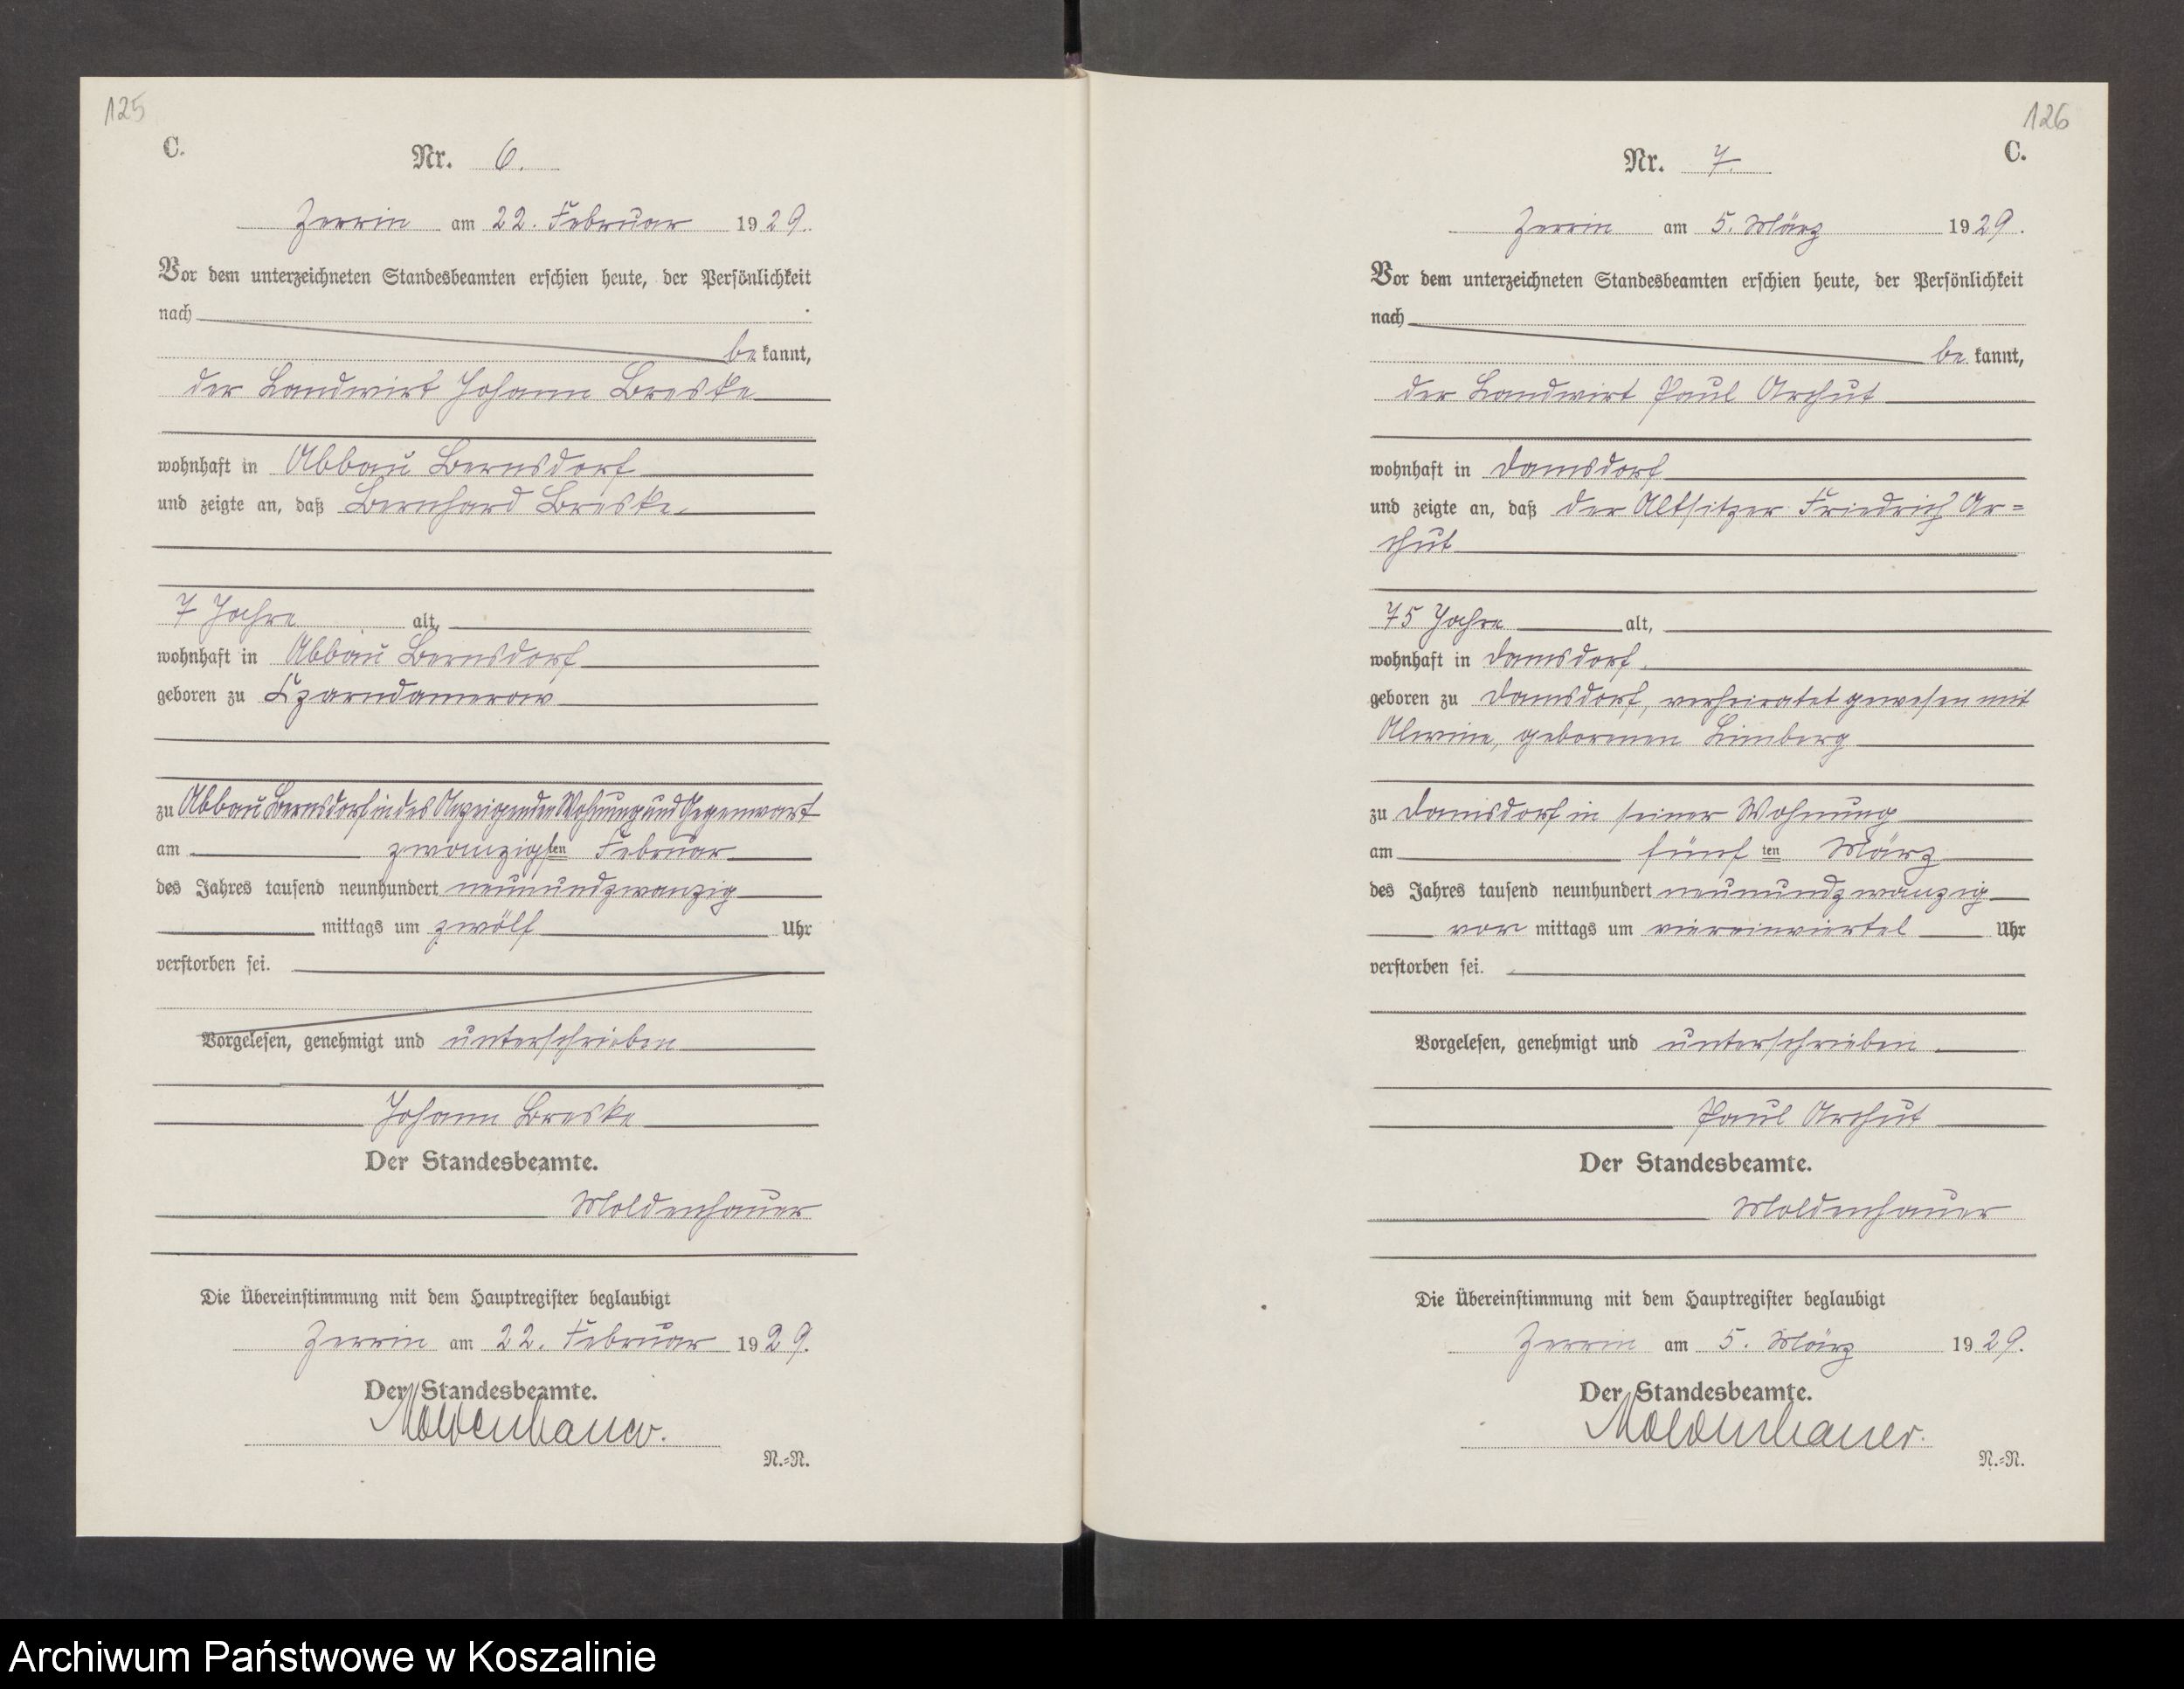 125
C.
Nr. 6.
Zerrin am 22. Februar 1929.
Vor dem unterzeichneten Standesbeamten erschien heute, der Persönlichkeit
nach
bekannt,
der Landwirt Johann Breske
wohnhaft in Abbau Bernsdorf
und zeigte an, daß Bernhard Breske,
7 Jahre alt,
wohnhaft in Abbau Bernsdorf
geboren zu Czarndamerow
zu Abbau Bernsdorf in des Anzeigenden Wohnung und Gegenwart
am zwanzigsten Februar
des Jahres tausend neunhundert neunundzwanzig
mittags um zwölf Uhr
verstorben sei.
Vorgelesen, genehmigt und unterschrieben
Johann Breske
Der Standesbeamte.
Moldenhauer
Die Übereinstimmung mit dem Hauptregister beglaubigt
Zerrin am 22. Februar 1929.
Der Standesbeamte.
Moldenhauer.
N.=N.
126
C.
Nr. 7.
Zerrin am 5. März 1929.
Vor dem unterzeichneten Standesbeamten erschien heute, der Persönlichkeit
nach
bekannt,
der Landwirt Paul Archut
wohnhaft in Damsdorf
und zeigte an, daß der Altsitzer Friedrich Ar=
chut
75 Jahre alt,
wohnhaft in Damsdorf,
geboren zu Damsdorf, verheiratet gewesen mit
Alwine, geborenen Limberg
zu Damsdorf in seiner Wohnung
am fünften März
des Jahres tausend neunhundert neunundzwanzig
vor mittags um viereinviertel Uhr
verstorben sei.
Vorgelesen, genehmigt und unterschrieben
Paul Archut
Der Standesbeamte.
Moldenhauer
Die Übereinstimmung mit dem Hauptregister beglaubigt
Zerrin am 5. März 1929.
Der Standesbeamte.
Moldenhauer.
N.=N.
Archiwum Państwowe w Koszalinie